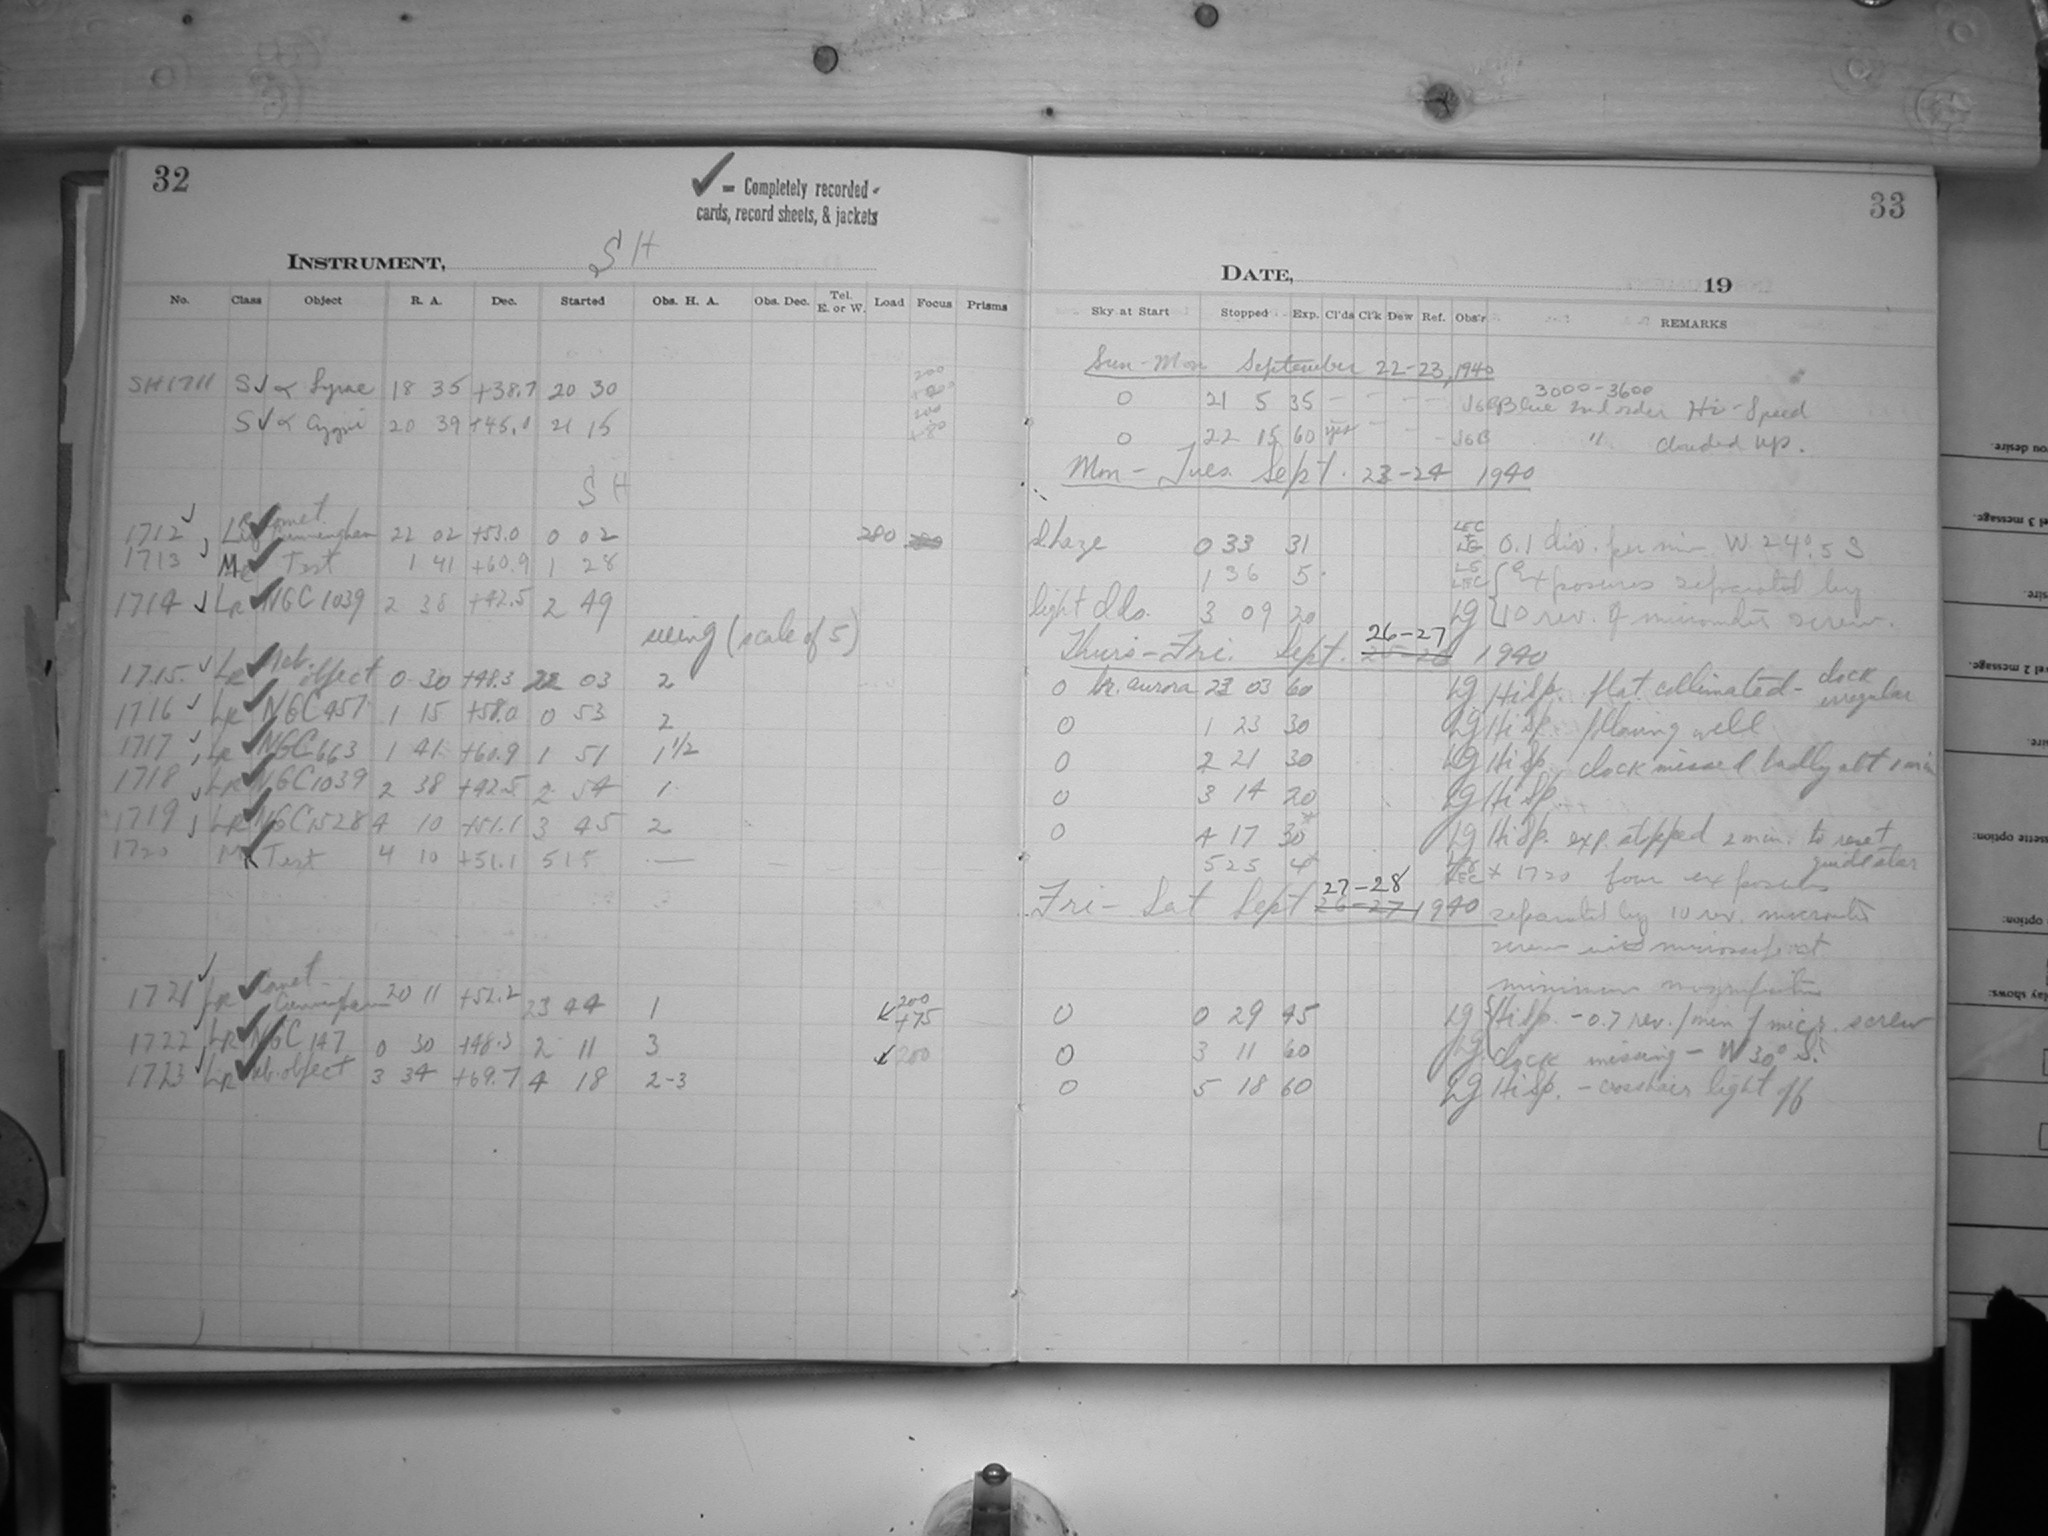 32
✓ – Completely recorded
cards, record sheets, & jackets
INSTRUMENT, SH
No. Class Object R. A. Dec. Started Obs. H. A. Obs. Dec. Tel. E. or W. Load Focus Prisms
SH1711 S ✓ α Lyrae 18 35 +38.7 20 30 200
S ✓ α Cygni 20 39 +45.1 21 15 200
SH
1712 ✓ Comet Cunningham 22 02 +53.0 0 02 280
1713 ✓ Test 1 41 +60.9 1 28
1714 ✓ LR ✓ NGC 1039 2 38 +42.5 2 49
seeing (scale of 5)
1715 ✓ LR ✓ object 0 30 +48.3 22 03 2
1716 ✓ LR ✓ NGC 457 1 15 +58.0 0 53 2
1717 ✓ LR ✓ NGC 663 1 41 +60.9 1 51 1 1/2
1718 ✓ LR ✓ NGC 1039 2 38 +42.5 2 54 1
1719 ✓ LR ✓ NGC 1528 4 10 +51.1 3 45 2
1720 Test 4 10 +51.1 5 15 —
1721 ✓ LR ✓ Comet Cunningham 20 11 +52.2 23 44 1 200 +75
1722 LR ✓ NGC 147 0 30 +48.3 2 11 3 200
1723 ✓ LR ✓ object 3 34 +69.7 4 18 2-3
33
DATE, 19
Sky at Start Stopped Exp. Cl'ds Cl'k Dew Ref. Obs'r REMARKS
Sun-Mon September 22-23, 1940
3000-3600
0 21 5 35 – – – – Blue 2nd order Hi-Speed
0 22 15 60 yes – – – " clouded up.
Mon-Tues. Sept. 23-24 1940
haze 0 33 31 LEC 0.1 div. per min. W 24°.5 S
1 36 5 LEC { Exposures separated by
light clds. 3 09 20 Lg 10 rev. of micrometer screw.
Thurs-Fri. Sept. 26-27 1940
0 br. aurora 23 03 60 Lg Hi Sp. flat collimated - clock irregular
0 1 23 30 Lg Hi Sp. following well
0 2 21 30 Lg Hi Sp, clock missed badly abt 1 min
0 3 14 20 Lg Hi Sp
0 4 17 30 Lg Hi Sp. exp. stopped 2 min. to reset guide star
5 25 4 LEC * 1720 four exposures
Fri-Sat Sept 27-28 1940 separated by 10 rev. micrometer
screw
minimum
0 0 29 45 Lg { Hi Sp. - 0.7 rev./min of micr. screw
0 3 11 60 Lg clock missing - W 30° S.
0 5 18 60 Lg Hi Sp. - crosshair light off